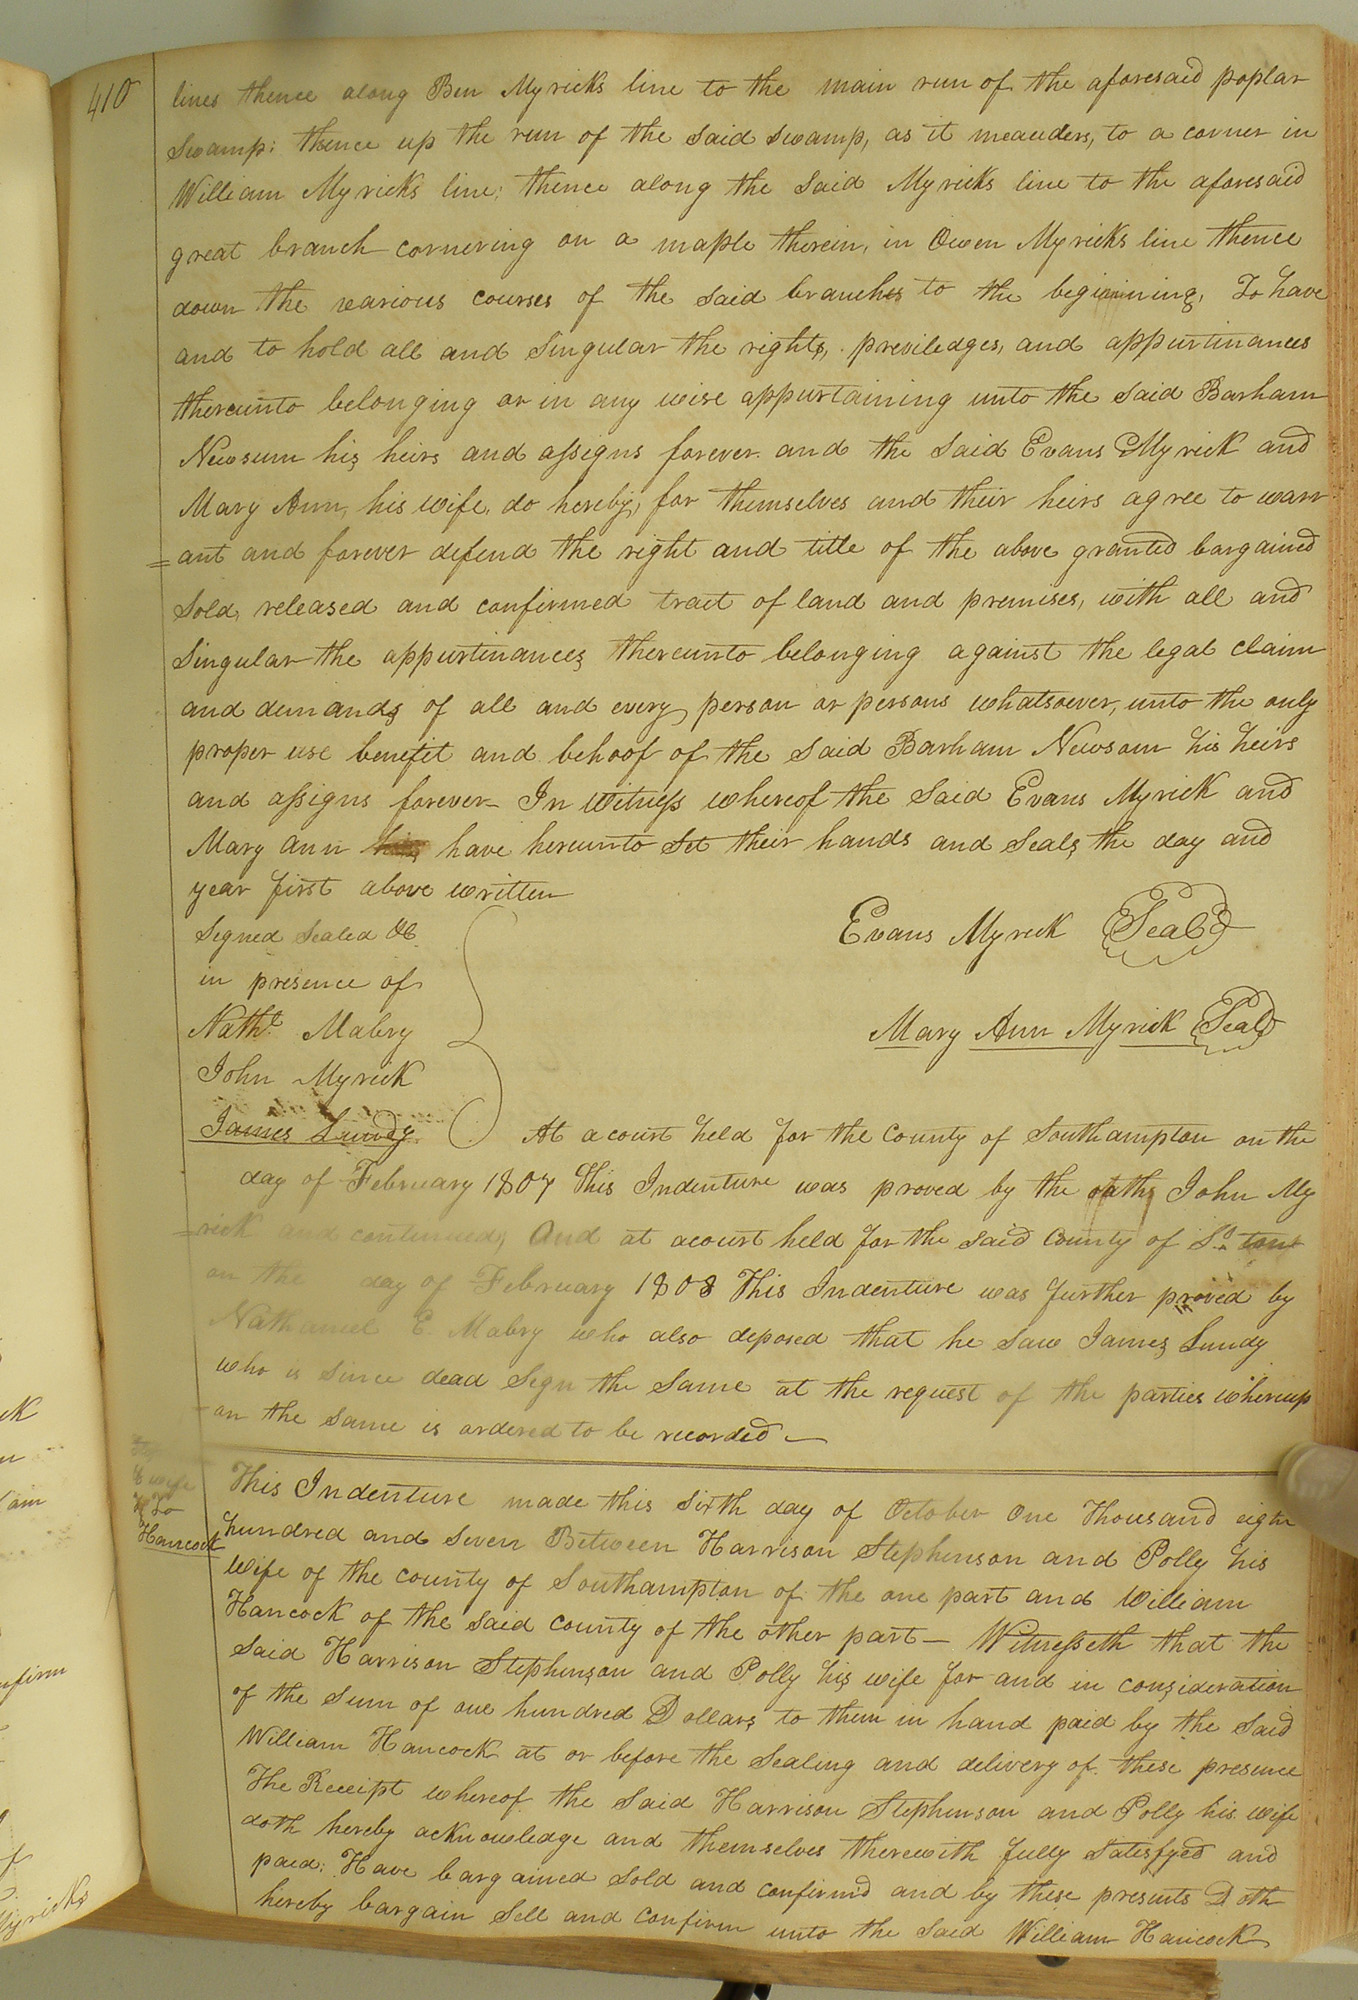 410
lines thence along Ben Myricks line to the main run of the aforesaid poplar
Swamp; thence up the run of the said swamp, as it meanders, to a corner in
William Myricks line; thence along the said Myricks line to the aforesaid
great branch cornering on a maple therein, in Owen Myricks line thence
down the various courses of the said branches to the beginning, To have
and to hold all and Singular the rights, priviledges, and appurtinances
thereunto belonging or in any wise appurtaining unto the said Barham
Newsum his heirs and assigns forever and the said Evans Myrick and
Mary Ann, his wife, do hereby, for themselves and their heirs agree to warr
=ant and forever defend the right and title of the above granted bargained
Sold, released and confirmed tract of land and premises, with all and
Singular the appurtinances thereunto belonging against the legal claim
and demands of all and every person or persons whatsoever, unto the only
proper use benefit and behoof of the said Barham Newsom his heirs
and assigns forever – In Witness whereof the said Evans Myrick and
Mary Ann have hereunto Set their hands and Seals the day and
year first above written
Signed Sealed &c
in presence of
Nathl. Mabry
John Myrick
James Lundy
Evans Myrick Seal
Mary Ann Myrick Seal
At a court held for the County of Southampton on the
day of February 1807 This Indenture was proved by the oaths John My
=rick and continued, And at acourt held for the said County of So.
on the day of February 1808 This Indenture was further proved by
Nathaniel E. Mabry who also deposed that he saw James Lundy
who is since dead Sign the Same at the request of the parties whereup
-on the same is ordered to be recorded –
& wife
To
Hancock
This Indenture made this sixth day of October One Thousand eight
hundred and Seven Between Harrison Stephenson and Polly his
wife of the county of Southampton of the one part and William
Hancock of the said county of the other part – Witnesseth that the
said Harrison Stephenson and Polly his wife for and in consideration
of the sum of one hundred Dollars to them in hand paid by the said
William Hancock at or before the Sealing and delivery of these presence
The Receipt whereof the said Harrison Stephenson and Polly his wife
doth hereby acknowledge and themselves therewith fully Satisfyed and
paid: Have bargained Sold and confirm'd and by these presents Doth
hereby bargain Sell and Confirm unto the said William Hancock